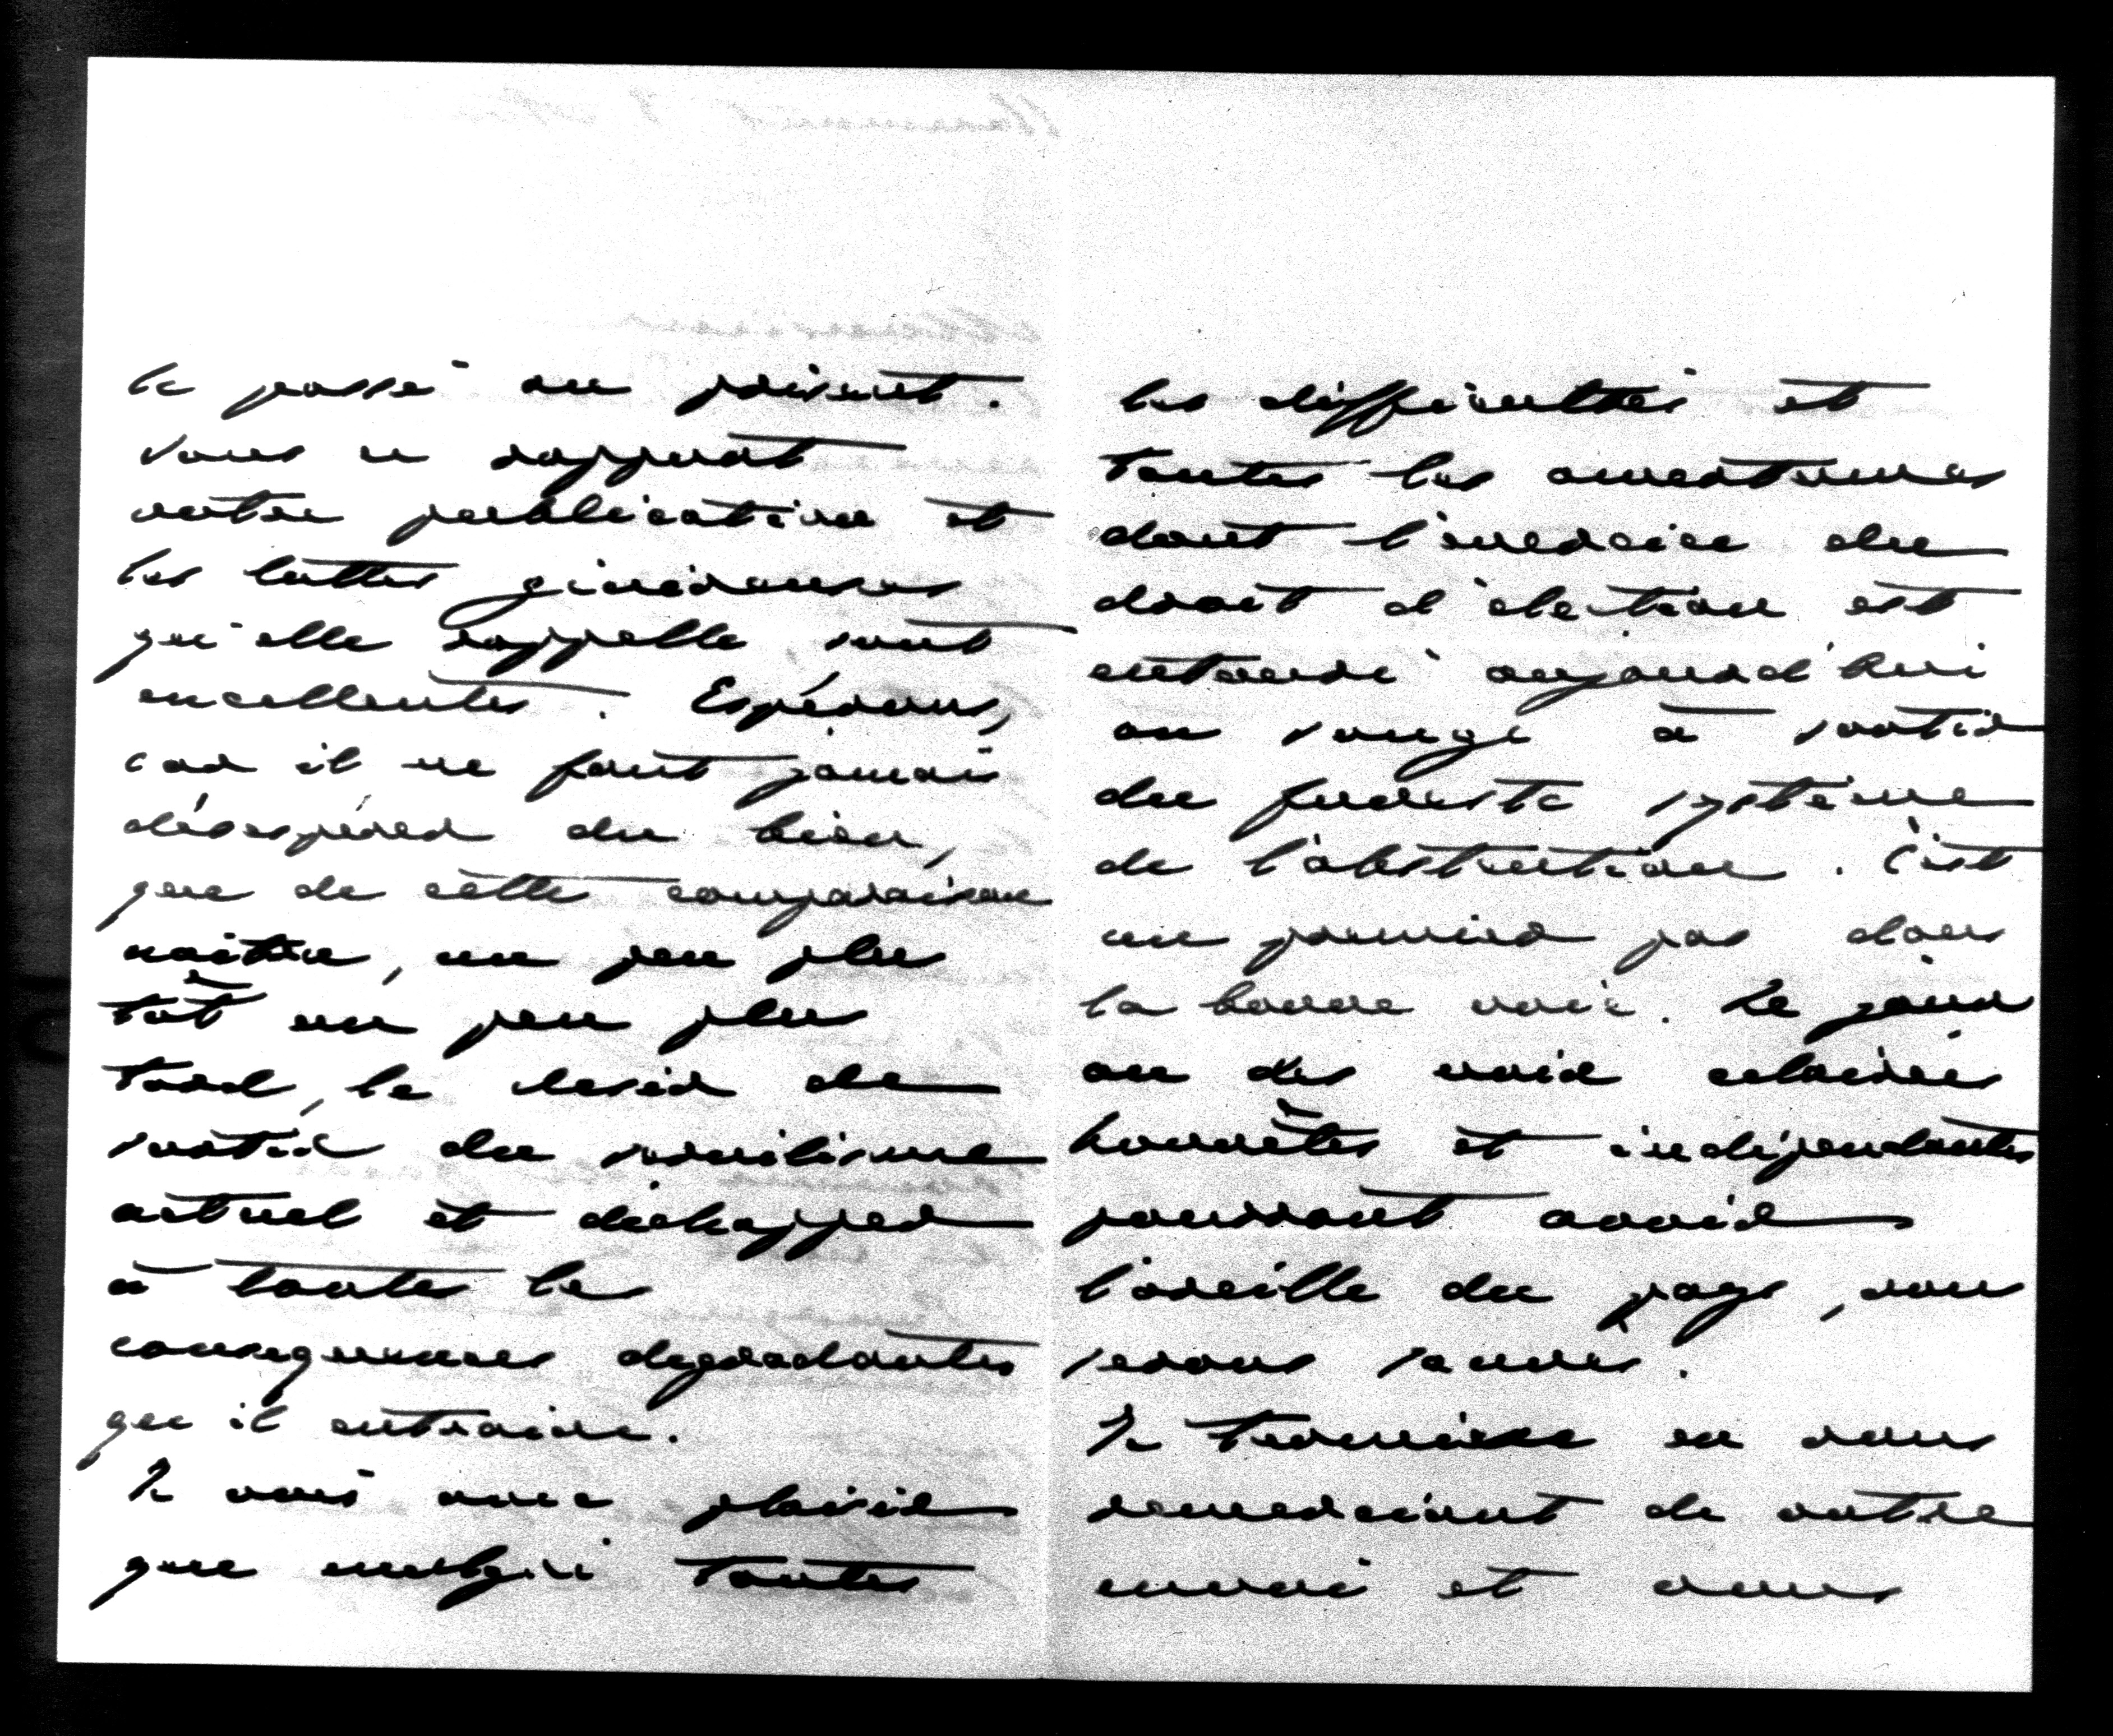 le passé au présent.
Sous ce rapport
votre publication et
les luttes généreuses
qu'elle rappelle sont
excellentes. Espérons,
car il ne faut jamais
désespérer du bien,
que de cette comparaison
naîtra, un peu plus
tôt un peu plus
tard, le desir de
sortir du servilisme
actuel et d'échapper
à toutes les
consequences degradantes
qu'il entraine.
Je vois avec plaisir
que malgré toutes
les difficultés et
toutes les amertumes
dont l'exercice du
droit d'élection est
entouré aujourd'hui
on songe à sortir
du funeste système
de l'abstention. C'est
un premier pas dans
la bonne voie. Le jour
ou des voix éclairées
honnêtes et indépendantes
pourront avoir
l'oreille du pays, nous
serons sauvés.
Je termine en vous
remerciant de votre
envoi et vous